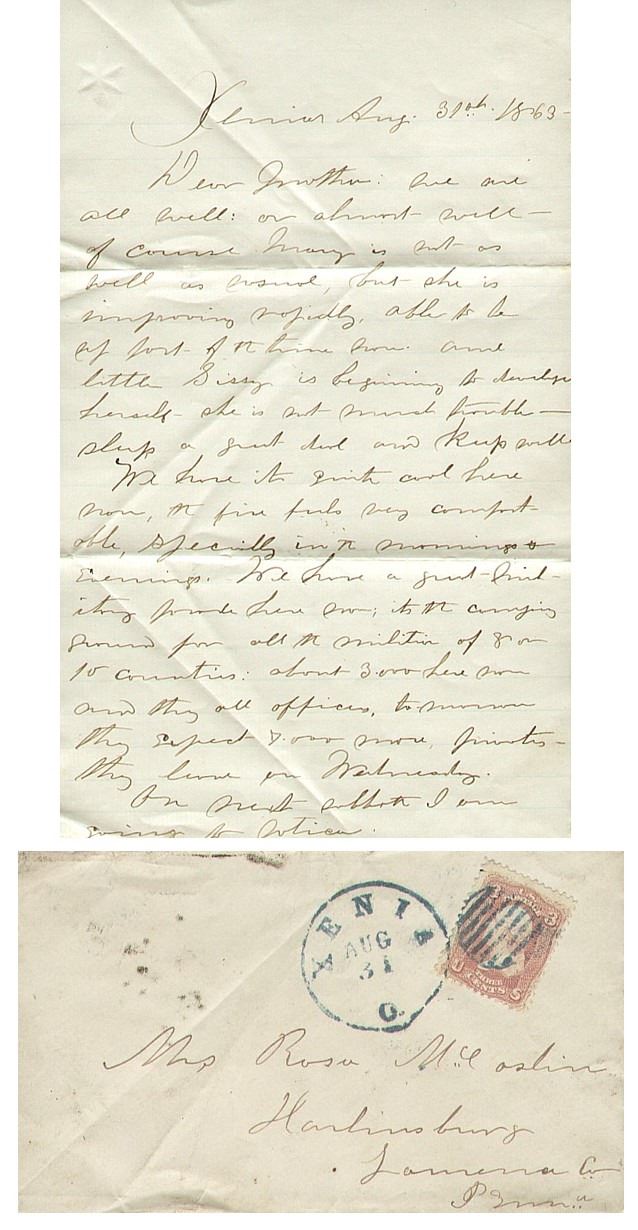 Xenia Aug. 31st. 1863-
Dear Mother: we are
all well: or almost well-
of course Mary is not as
well as usual, but she is
improving rapidly, able to be
up part of th time now. and
little Sissy is begining to develope
herself- she is not much trouble-
sleep a great deal and keep well
We have it quite cool here
now, th fire feels very comfort-
able, specially in th mornings &
Evenings. We have a great
here now; its th camping
ground for all th militia of 8 or
10 counties: about 3.000 here now
and they all offices, to-morrow
they expect 7.000 more, privates-
they leave on Wednesday.
On next sabbath I am
going to Utica.
XENIA
AUG
31
O.
3
U S
THREE
CENTS
Mrs Rosa McCaslin
Harlinsburg
Co
Penna